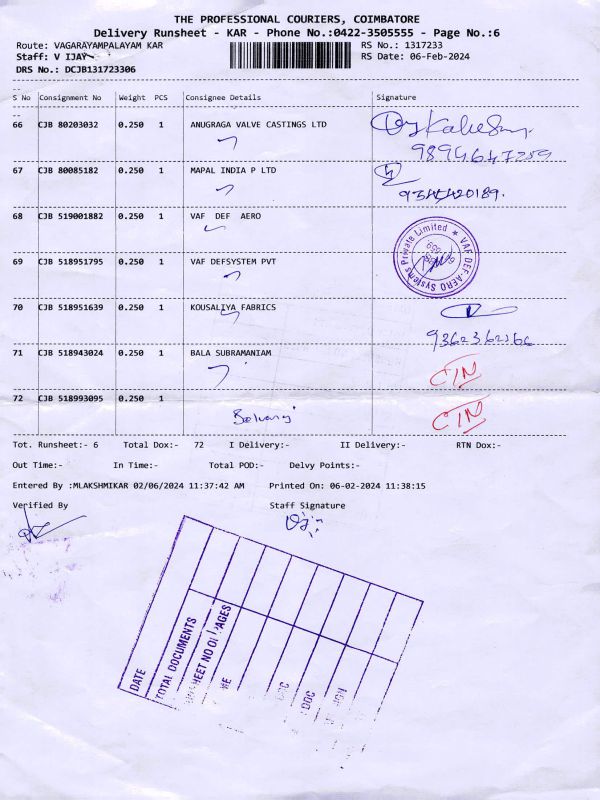 THE PROFESSIONAL COURIERS, COIMBATORE
Delivery Runsheet - KAR - Phone No.:0422-3505555 - Page No.:6
Route: VAGARAYAMPALAYAM KAR RS No.: 1317233
Staff: V IJAY RS Date: 06-Feb-2024
DRS No.: DCJB131723306
S No Consignment No Weight PCS Consignee Details Signature
66 CJB 80203032 0.250 1 ANUGRAGA VALVE CASTINGS LTD
9894647259
67 CJB 80085182 0.250 1 MAPAL INDIA P LTD
68 CJB 519001882 0.250 1 VAF DEF AERO
VAF DEF-AERO Systems Private Limited ★
69 CJB 518951795 0.250 1 VAF DEFSYSTEM PVT
70 CJB 518951639 0.250 1 KOUSALIYA FABRICS
71 CJB 518943024 0.250 1 BALA SUBRAMANIAM
72 CJB 518993095 0.250 1
Tot. Runsheet:- 6 Total Dox:- 72 I Delivery:- II Delivery:- RTN Dox:-
Out Time:- In Time:- Total POD:- Delvy Points:-
Entered By :MLAKSHMIKAR 02/06/2024 11:37:42 AM Printed On: 06-02-2024 11:38:15
Verified By Staff Signature
DATE
TOTAL DOCUMENTS